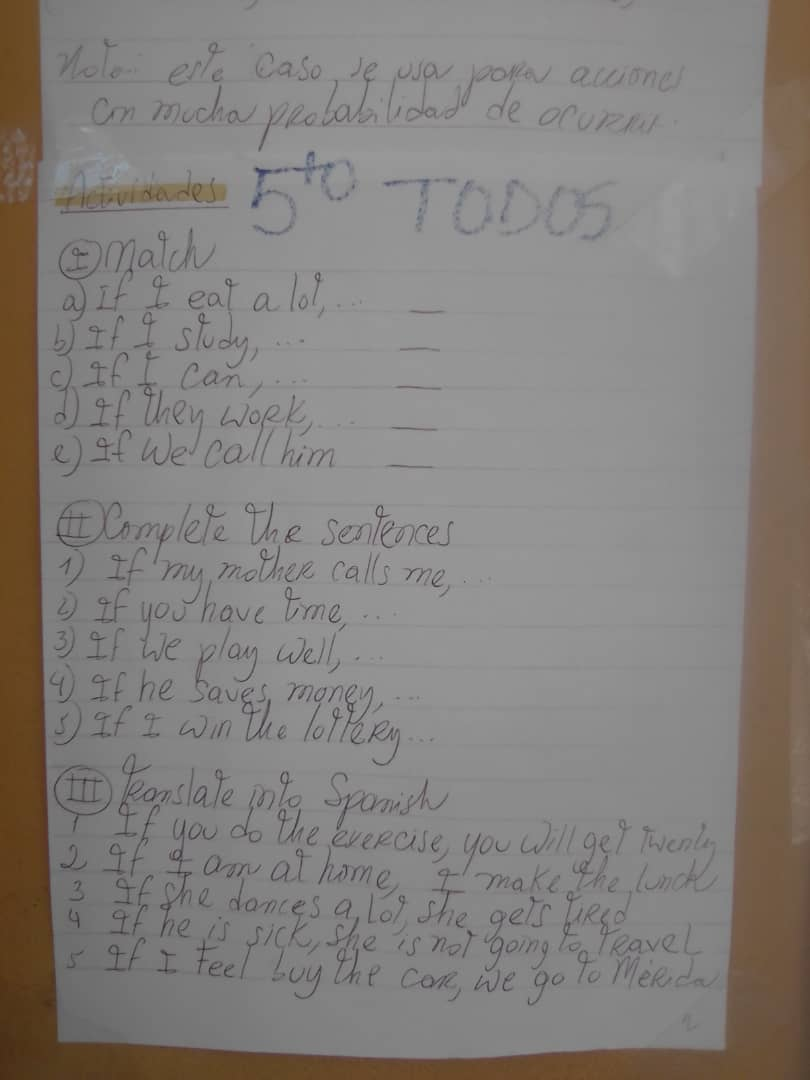 Nota: este caso se usa para acciones
con mucha probabilidad de ocurrir.
Actividades 5to TODOS
I Match
a) If I eat a lot, ... __
b) If I study, ... __
c) If I can, ... __
d) If they work, ... __
e) If we call him __
II Complete the sentences
1) If my mother calls me, ...
2) If you have time, ...
3) If we play well, ...
4) If he saves money, ...
5) If I win the lottery...
III Translate into Spanish
1 If you do the exercise, you will get twenty
2 If I am at home, I make the lunch
3 If she dances a lot, she gets tired
4 If he is sick, she is not going to travel
5 If I feel buy the car, we go to Mérida
2